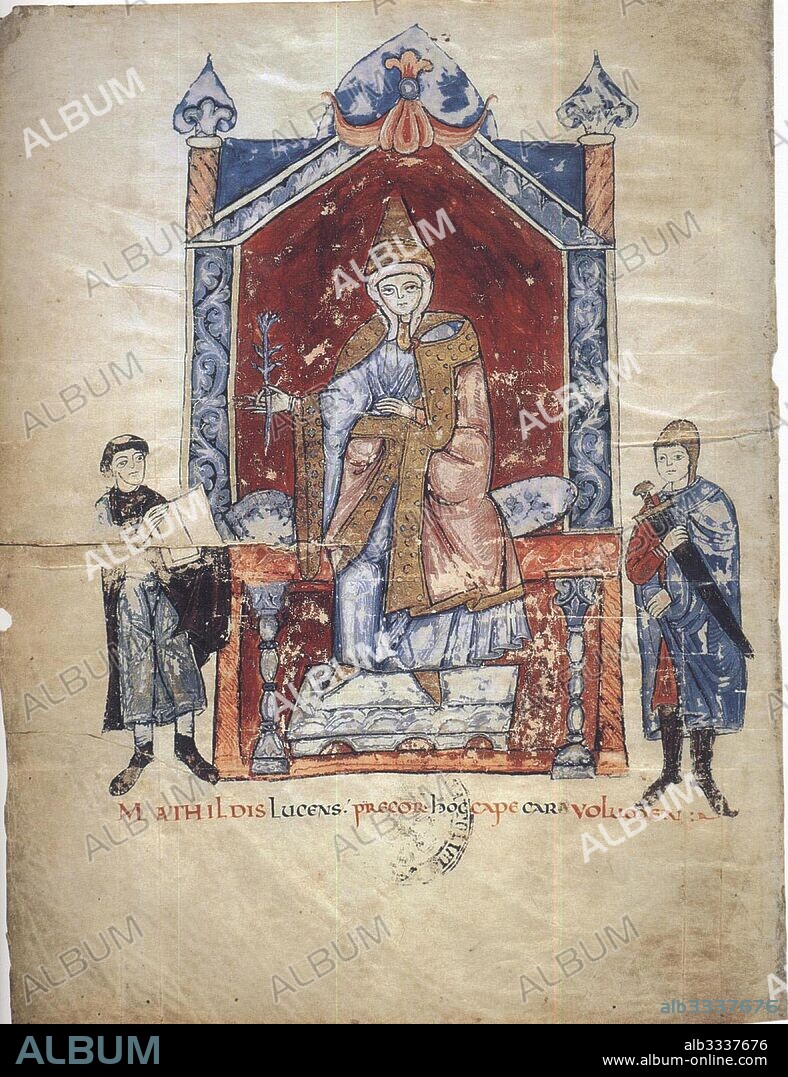 MATHILDIS LUCENS: PRECOR HOC CAPE CARA VOLUMEN
ALBUM
alb3337676
ALBUM
alb3337676
www.album-online.com